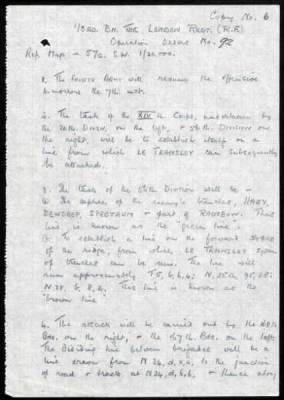 Copy No. 6
1/3rd. Bn. THE LONDON REGT. (R.F.)
Operation Order No. 92
Ref. Map - 57c. S.W. 1/20,000.
1. The FOURTH Army will resume the offensive
tomorrow the 7th inst.
2. The task of the XIV th. Corps, undertaken by
the 20th. Divsn. on the left, & 56th. Division on
the right, will be to establish itself on a
line from which LE TRANSLOY can subsequently
be attacked.
3. The task of the 56th Division will be -
The capture of the enemy's trenches, HAZY,
DEWDROP, SPECTRUM & part of RAINBOW. This
line is known as the "green line".
To establish a line on the forward slope
of the ridge, from which LE TRANSLOY system
of trenches can be seen. This line will
run approximately
This line is known as the
"brown line".
4. The attack will be carried out by the
Bde. on the right, & the 167th. Bde. on the left.
The dividing line between brigades will be a
line drawn from N 34, to the junction
of road & track at N 34, & thence along